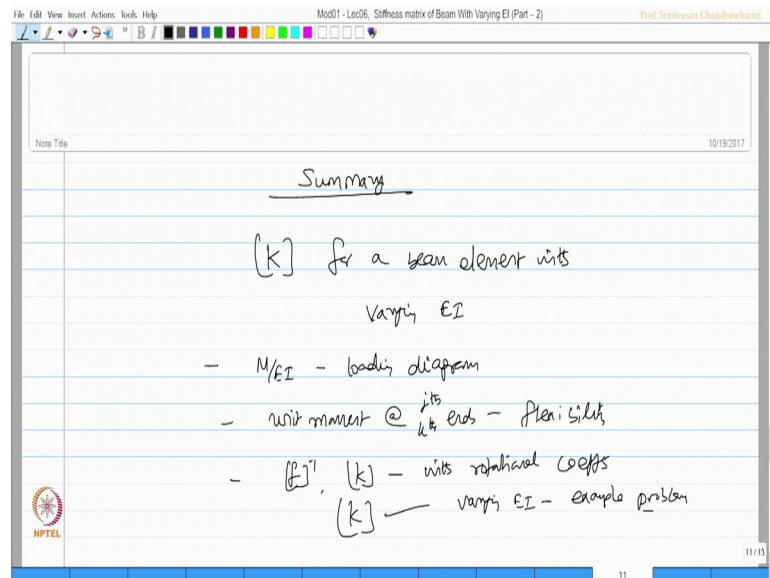 File Edit View Insert Actions Tools Help
Mod01 - Lec06, Stiffness matrix of Beam With Varying EI (Part – 2)
Prof. Srinivasan Chandrasekaran
B I
Note Title
10/19/2017
Summary
[K] for a beam element with
Varying EI
- M/EI - loading diagram
- unit moment @ jth kth ends - flexibility
- [f]⁻¹, [k] - with rotational coeffs
[K] - varying EI - example problem
NPTEL
11/13
11